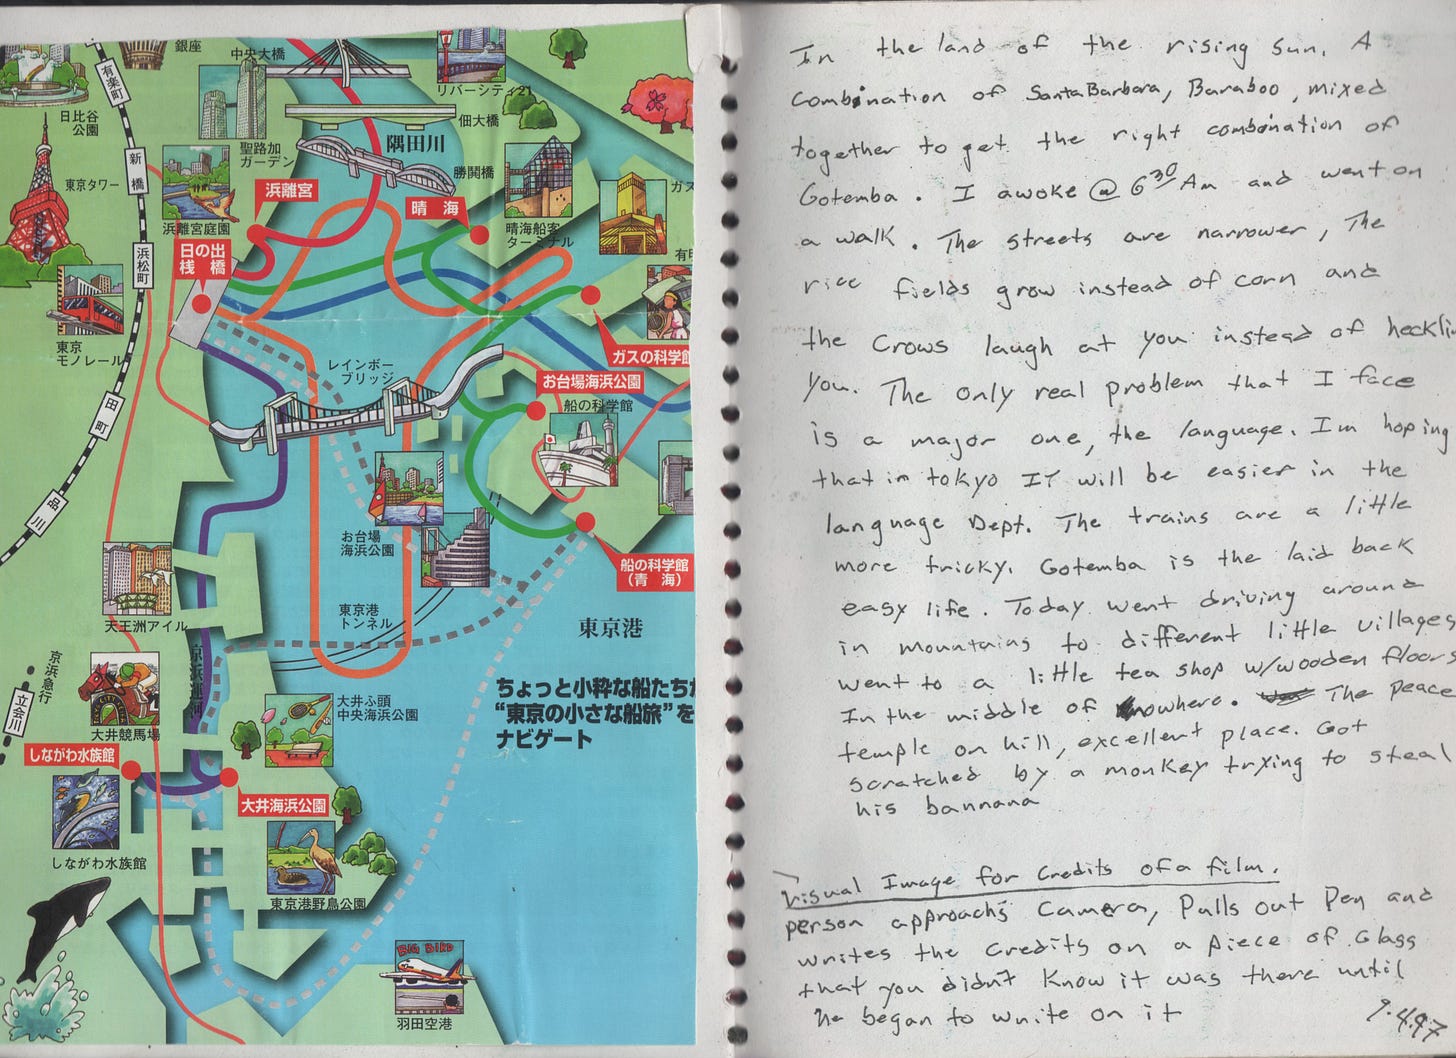 銀座
中央大橋
リバーシティ21
有楽町
日比谷
公園
聖路加
ガーデン
隅田川
佃大橋
新橋
東京タワー
勝鬨橋
浜離宮
晴海
浜離宮庭園
晴海船客
ターミナル
ガス
日の出
桟橋
浜松町
有明
東京
モノレール
ガスの科学館
レインボー
ブリッジ
お台場海浜公園
船の科学館
田町
品川
お台場
海浜公園
船の科学館
(青海)
天王洲アイル
東京港
トンネル
東京港
京浜急行
京浜運河
ちょっと小粋な船たちが
“東京の小さな船旅”を
ナビゲート
立会川
大井ふ頭
中央海浜公園
大井競馬場
しながわ水族館
大井海浜公園
しながわ水族館
東京港野鳥公園
BIG BIRD
羽田空港
In the land of the rising sun. A
combination of Santa Barbara, Baraboo, mixed
together to get the right combination of
Gotemba. I awoke @ 6:30 Am and went on
a walk. The streets are narrower, The
rice fields grow instead of corn and
the Crows laugh at you instead of heckling
you. The only real problem that I face
is a major one, the language. Im hoping
that in tokyo IT will be easier in the
language Dept. The trains are a little
more tricky. Gotemba is the laid back
easy life. Today went driving around
in mountains to different little villages
went to a little tea shop w/wooden floors
In the middle of nowhere. The peace
temple on hill, excellent place. Got
scratched by a monkey trying to steal
his bannana
Visual Image for Credits of a film.
person approachs Camera, Pulls out Pen and
writes the Credits on a piece of Glass
that you didn't know it was there until
he began to write on it
9.4.97